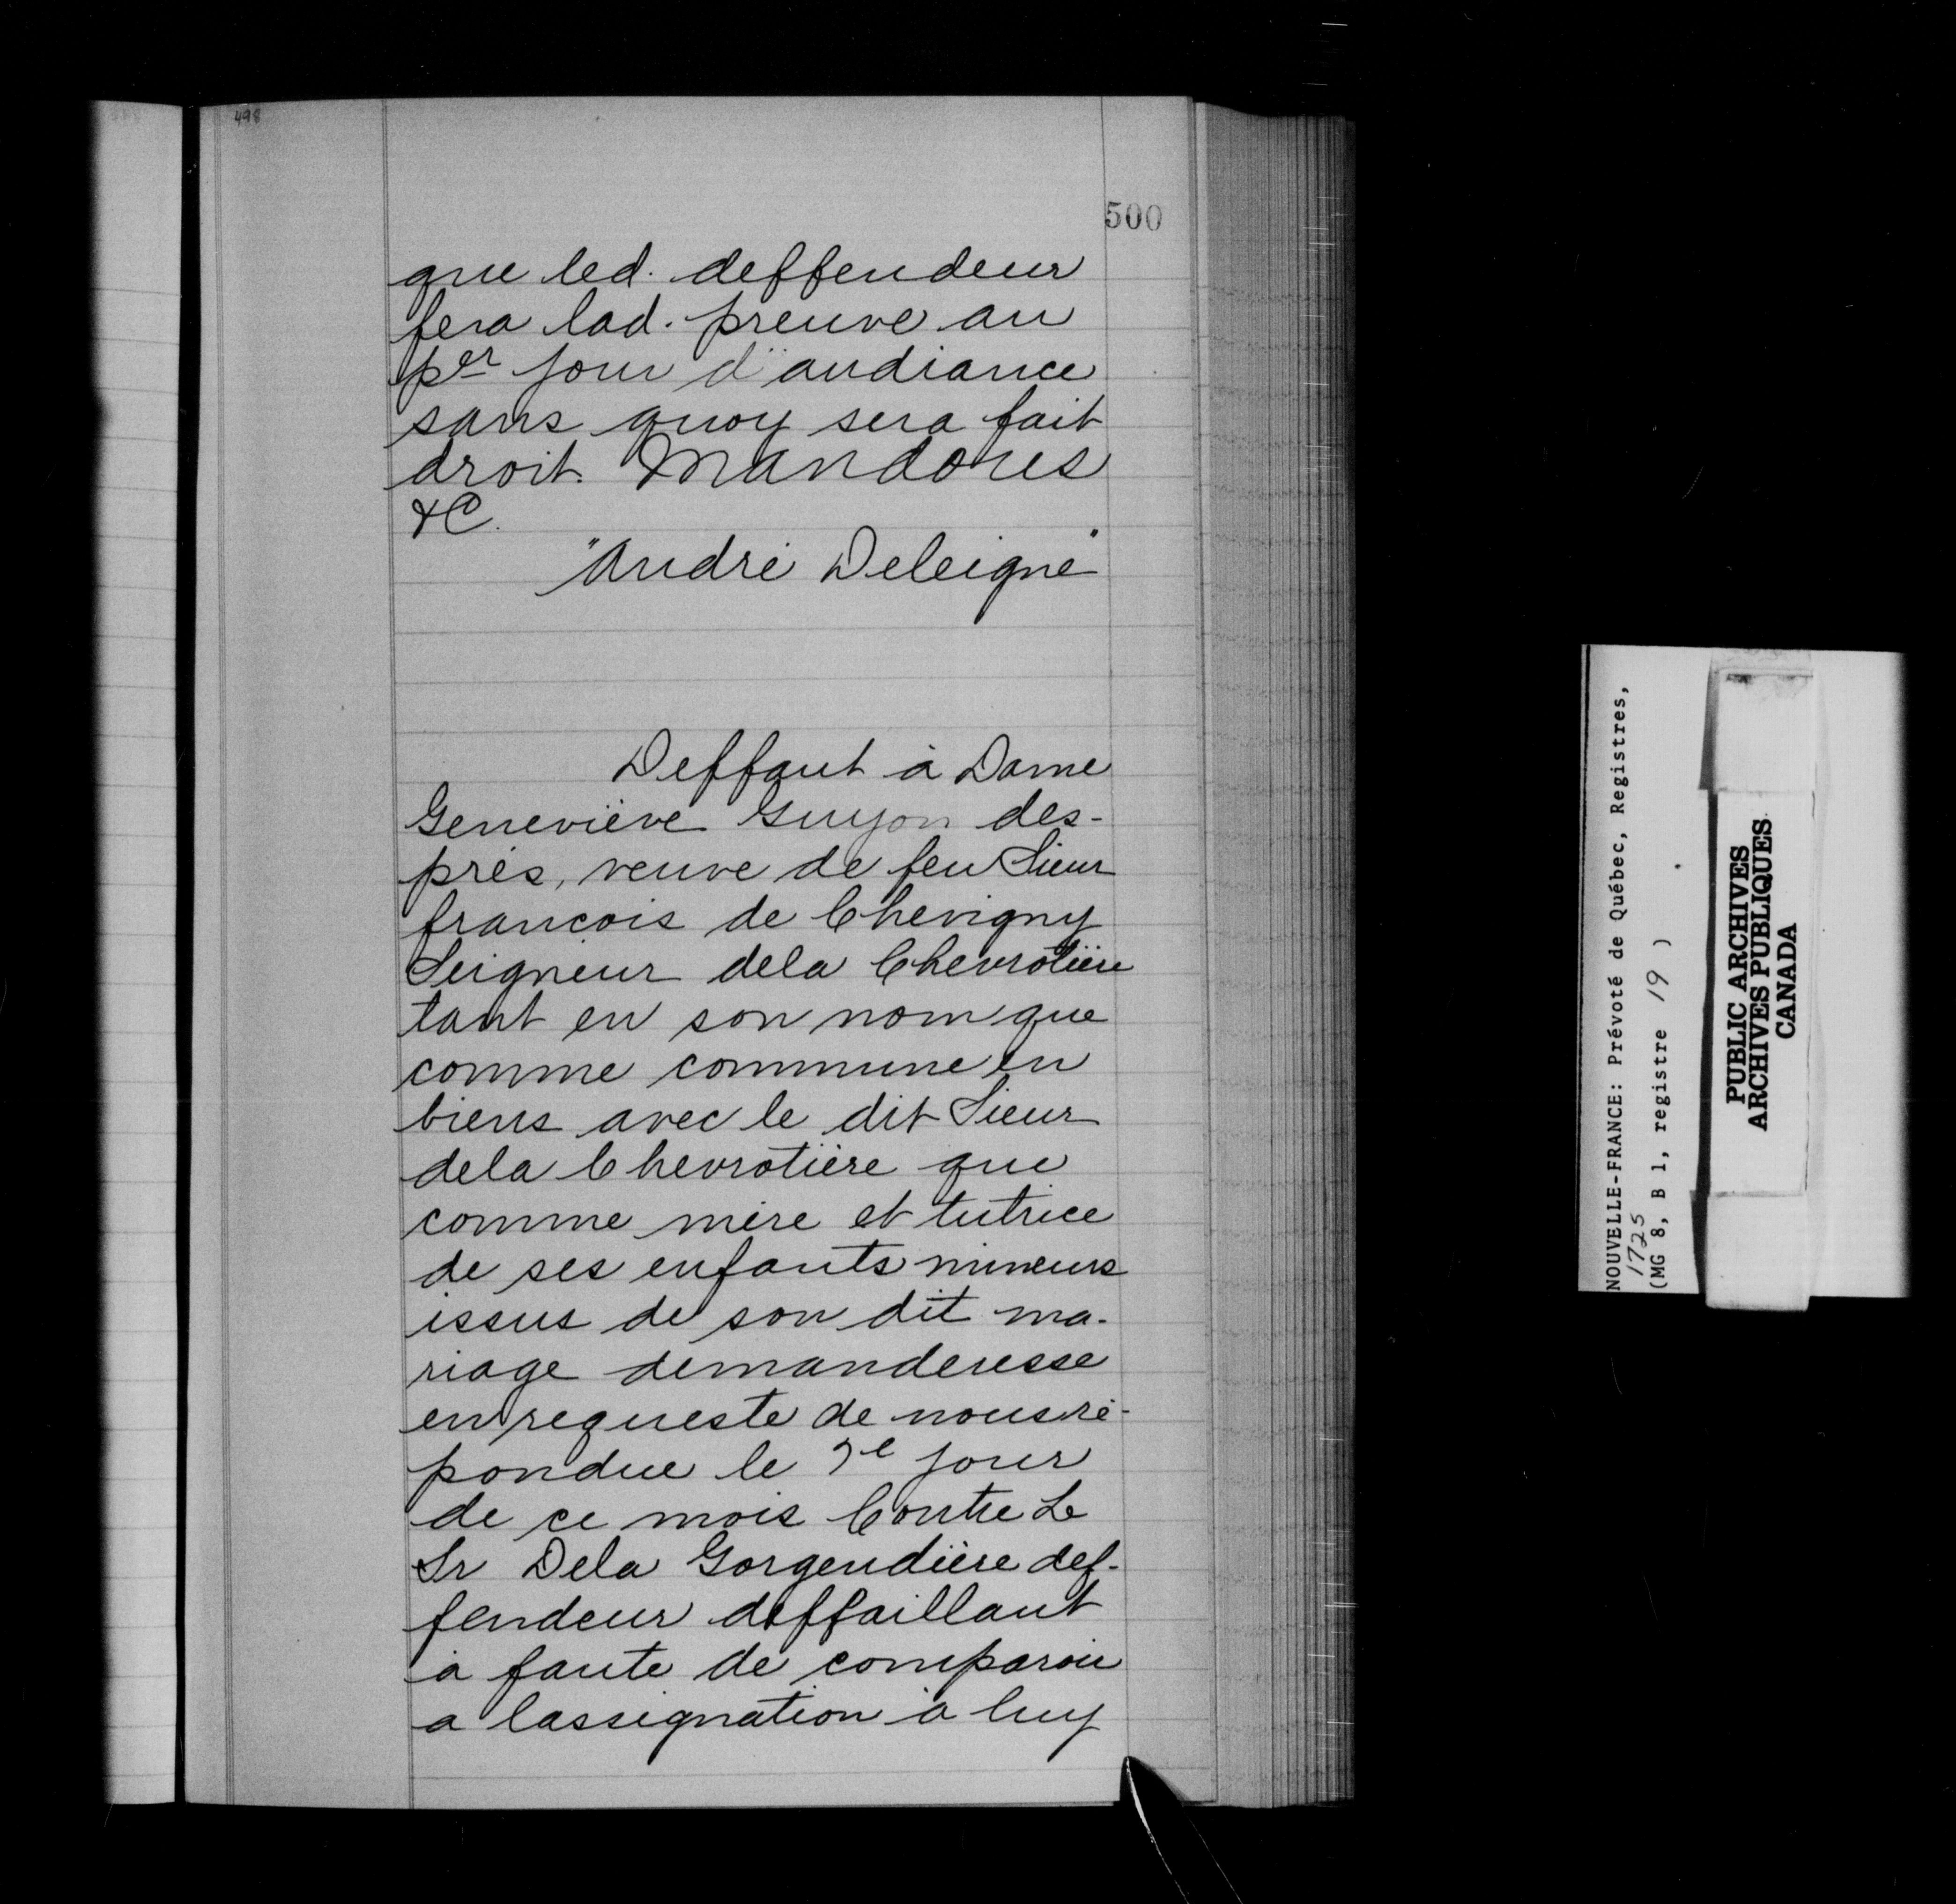 498
500
que led. deffendeur
fera lad. preuve au
per jour d'audiance
sans quoy sera fait
droit. Mandons
&C.
"André Deleigne"
Deffaut à Dame
Geneviève Guyon des-
prés, veuve de feu Sieur
francois de Chevigny
Seigneur dela Chevrotière
tant en son nom que
comme commune en
biens avec le dit Sieur
dela Chevrotière que
comme mère et tutrice
de ses enfants mineurs
issus de son dit ma-
riage demanderesse
en requeste de nous ré-
pondue le 7e jour
de ce mois Contre Le
Sr Dela Gorgendière def-
fendeur deffaillant
à faute de comparoir
a lassignation à luy
NOUVELLE-FRANCE: Prévoté de Québec, Registres,
1725
(MG 8, B 1, registre 19 )
PUBLIC ARCHIVES
ARCHIVES PUBLIQUES
CANADA